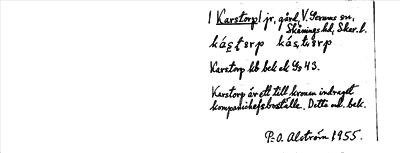 | Karstorp | jr, gård, V. Gerums sn,
Skånings hd, Skar. l.
Karstorp kb bek. ek Gs 43.
Karstorp är ett till kronan indraget
kompanichefsboställe. Detta nb. bek.
P.O. Alström 1955.